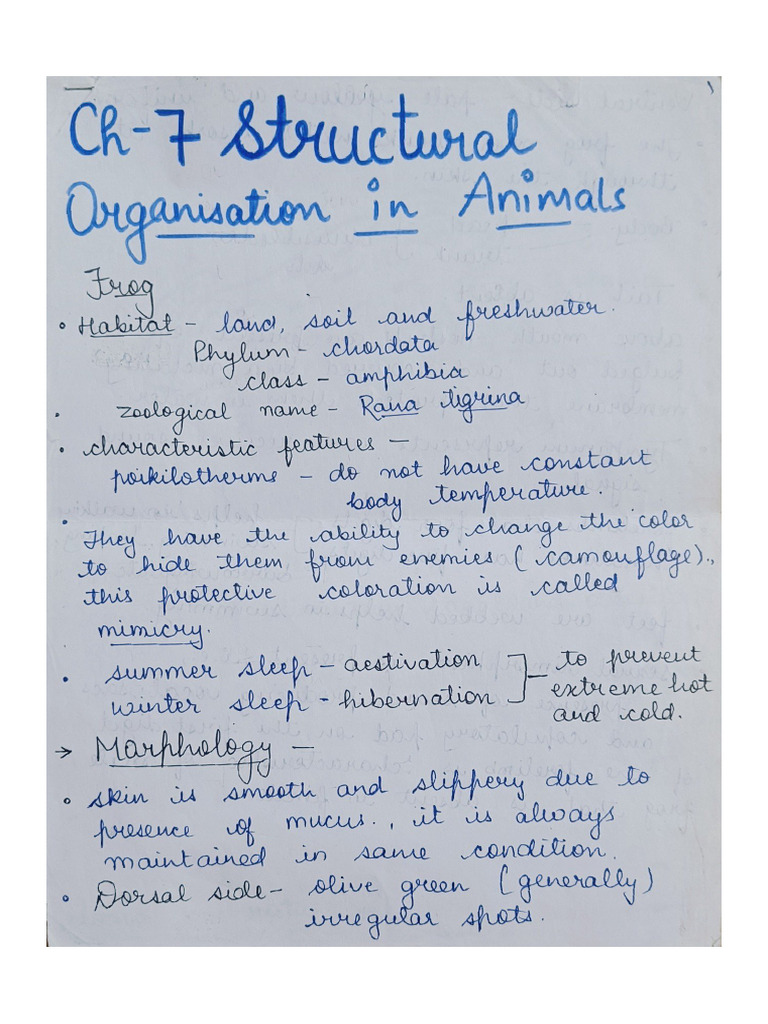 Ch-7 Structural
Organisation in Animals
Frog
• Habitat - land, soil and freshwater.
Phylum - chordata
class - amphibia
• zoological name - Rana tigrina
• characteristic features -
poikilotherms - do not have constant
body temperature.
• They have the ability to change the color
to hide them from enemies (camouflage).,
this protective coloration is called
mimicry.
• summer sleep - aestivation ] - to prevent
winter sleep - hibernation extreme hot
and cold.
→ Marphology -
• skin is smooth and slippery due to
presence of mucus., it is always
maintained in same condition.
• Dorsal side - olive green (generally)
irregular spots.